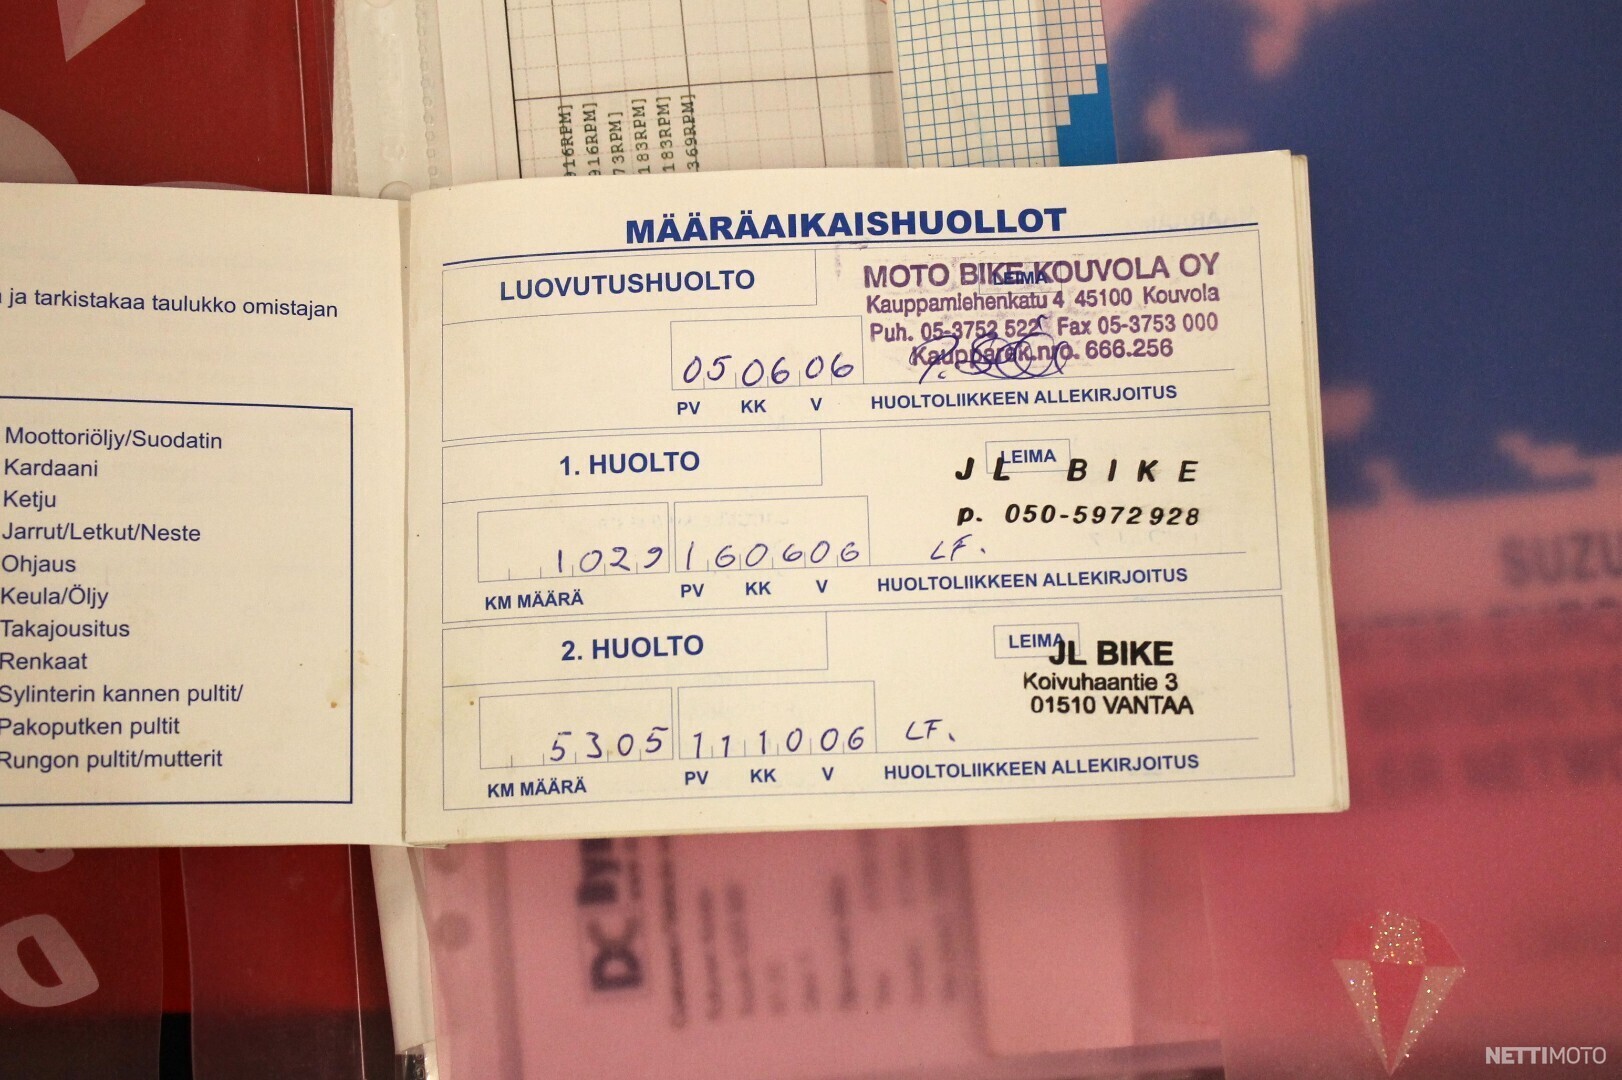 916RPM]
916RPM]
73RPM]
183RPM]
183RPM]
369RPM]
ja tarkistakaa taulukko omistajan
Moottoriöljy/Suodatin
Kardaani
Ketju
Jarrut/Letkut/Neste
Ohjaus
Keula/Öljy
Takajousitus
Renkaat
Sylinterin kannen pultit/
Pakoputken pultit
Rungon pultit/mutterit
MÄÄRÄAIKAISHUOLLOT
LUOVUTUSHUOLTO
LEIMA
MOTO BIKE KOUVOLA OY
Kauppamiehenkatu 4 45100 Kouvola
Puh. 05-3752 522 Fax 05-3753 000
Kaupparek.nro. 666.256
05 06 06
PV KK V HUOLTOLIIKKEEN ALLEKIRJOITUS
1. HUOLTO
LEIMA
JL BIKE
p. 050-5972928
1029 16 06 06 LF.
KM MÄÄRÄ PV KK V HUOLTOLIIKKEEN ALLEKIRJOITUS
2. HUOLTO
LEIMA
JL BIKE
Koivuhaantie 3
01510 VANTAA
5305 11 10 06 LF.
KM MÄÄRÄ PV KK V HUOLTOLIIKKEEN ALLEKIRJOITUS
SUZU
DC
NETTIMOTO